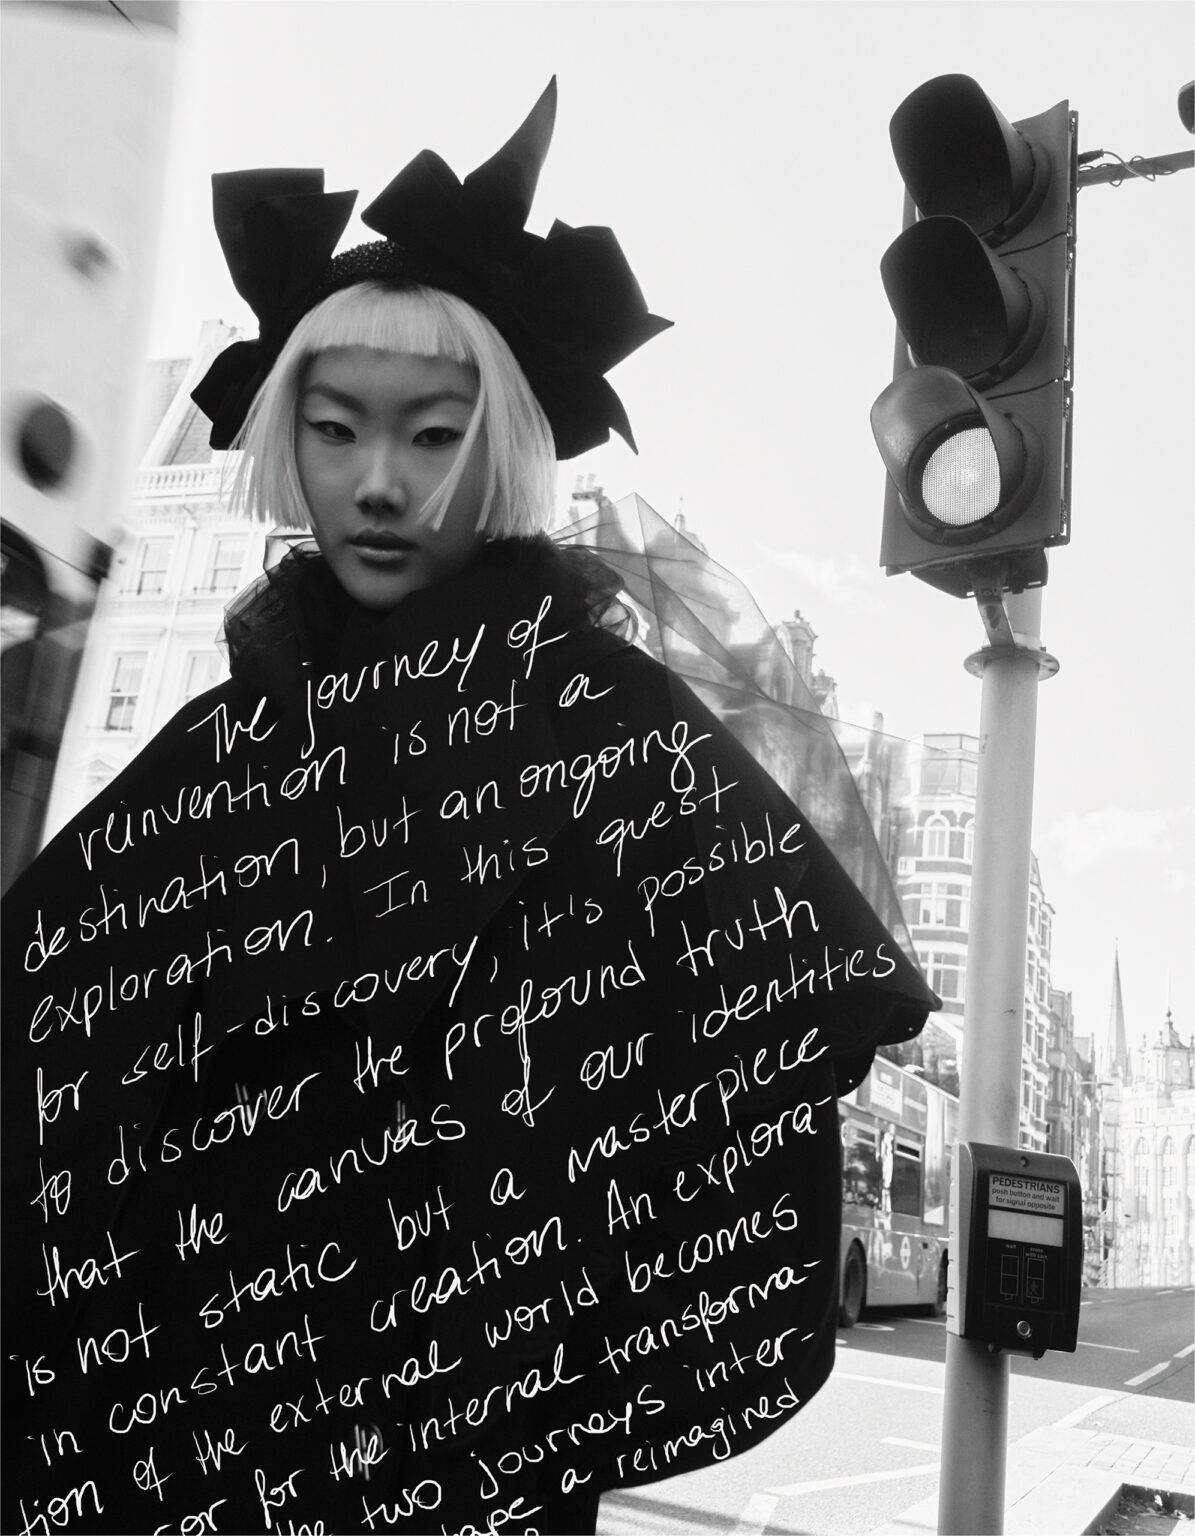 The journey of
reinvention is not a
destination, but an ongoing
exploration. In this quest
for self-discovery, it's possible
to discover the profound truth
that the canvas of our identities
is not static but a masterpiece
in constant creation. An explora-
tion of the external world becomes
for the internal transforma-
the two journeys inter-
a reimagined
PEDESTRIANS
push button and wait
for signal opposite
wait
cross
with care